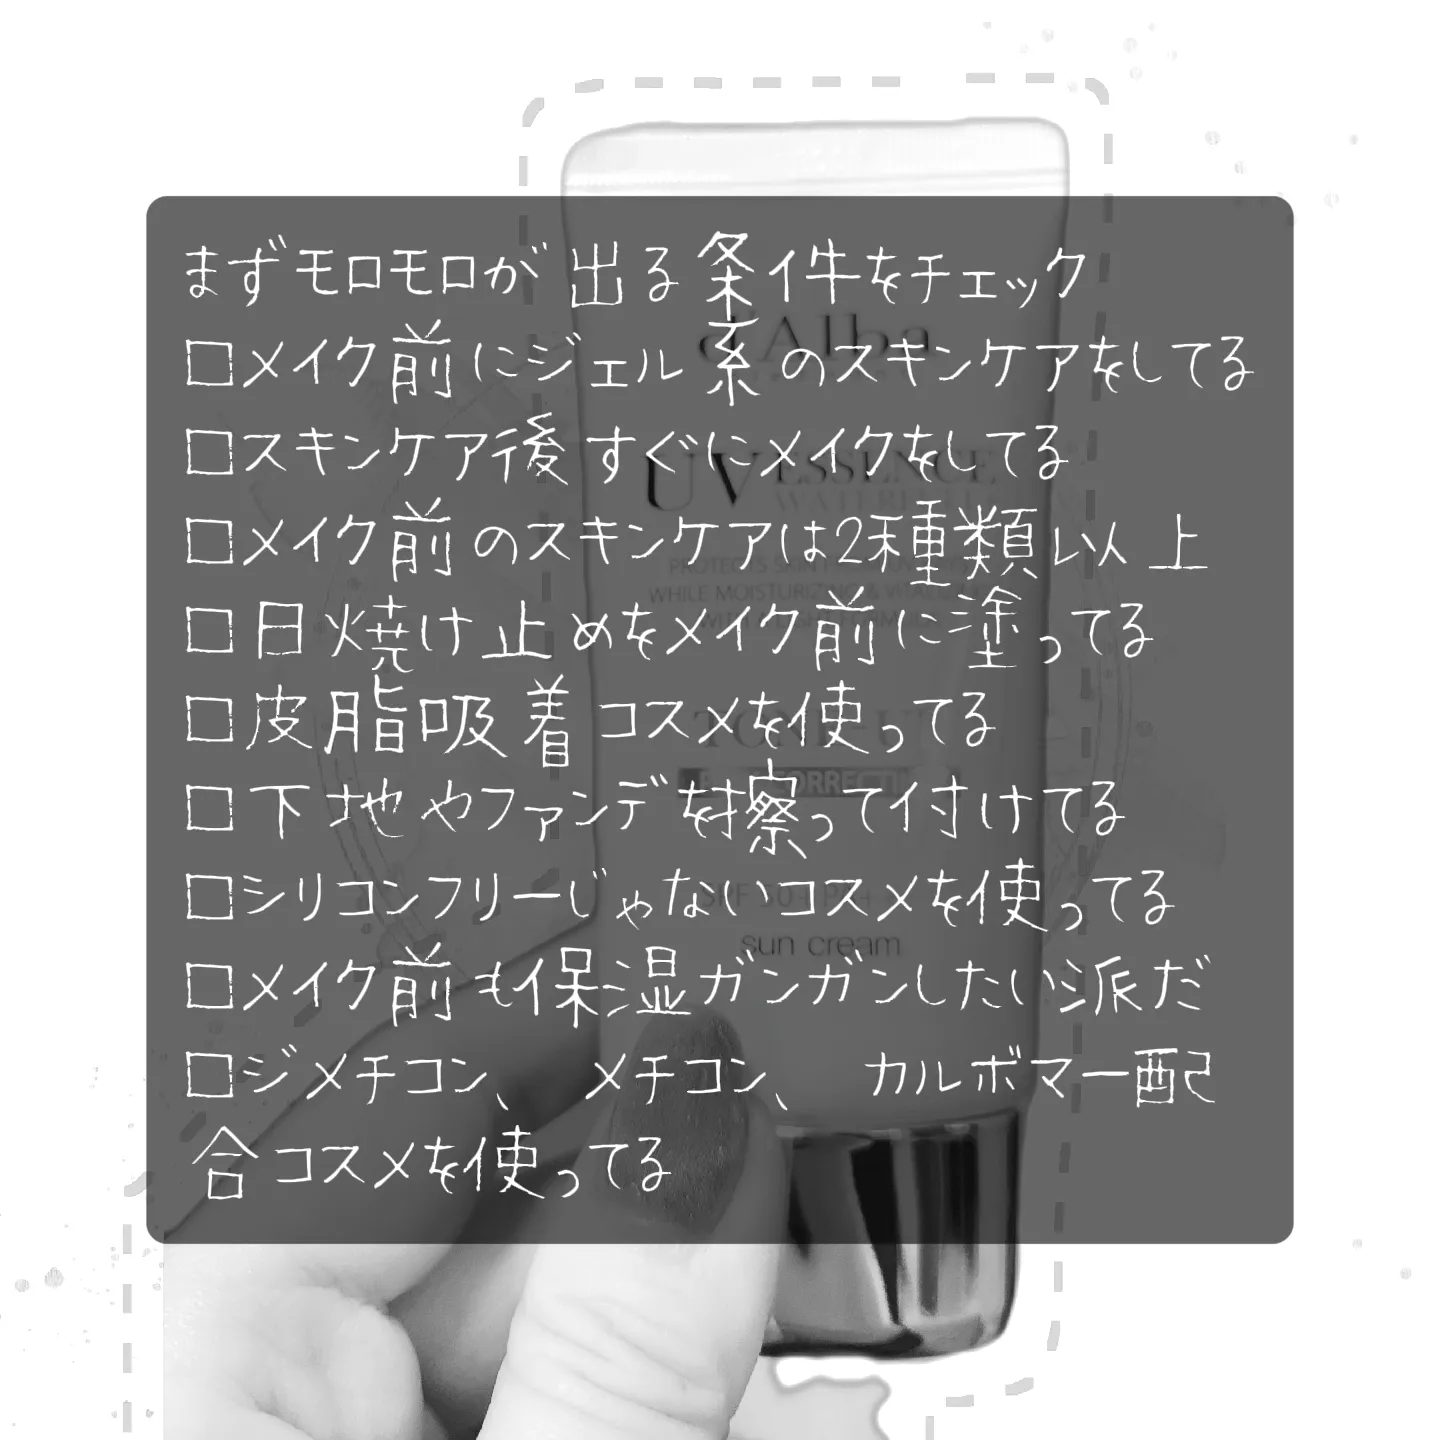 まずモロモロが出る条件をチェック
□メイク前にジェル系のスキンケアをしてる
□スキンケア後すぐにメイクをしてる
□メイク前のスキンケアは2種類以上
□日焼け止めをメイク前に塗ってる
□皮脂吸着コスメを使ってる
□下地やファンデを擦って付けてる
□シリコンフリーじゃないコスメを使ってる
□メイク前も保湿ガンガンしたい派だ
□ジメチコン、メチコン、カルボマー配
合コスメを使ってる
d'Alba
UV ESSENCE
WATERFULL
PROTECTS SKIN
WHILE MOISTURIZING & VITALIZING
WITH A LIGHT FORMULA
TONE-UP
CORRECTING
SPF 50+ PA+
sun cream